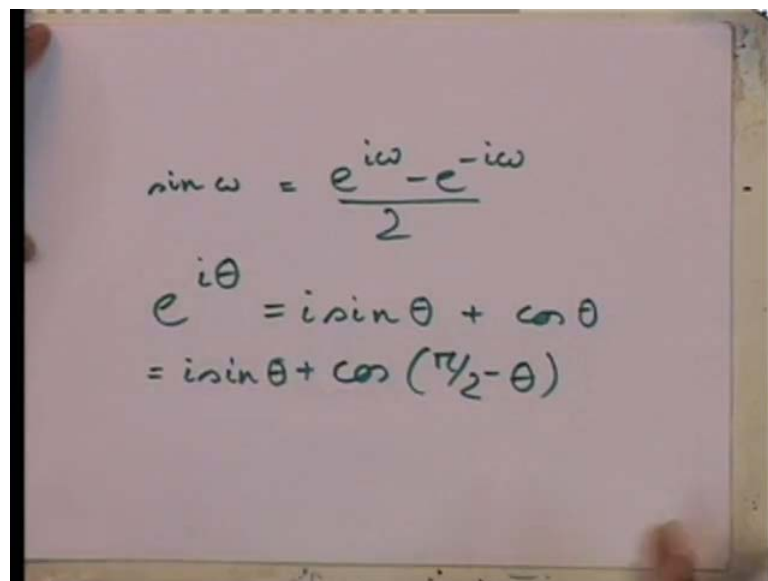 sin ω = (e^{iω} - e^{-iω})/2
e^{iθ} = i sin θ + cos θ
= i sin θ + cos (π/2 - θ)